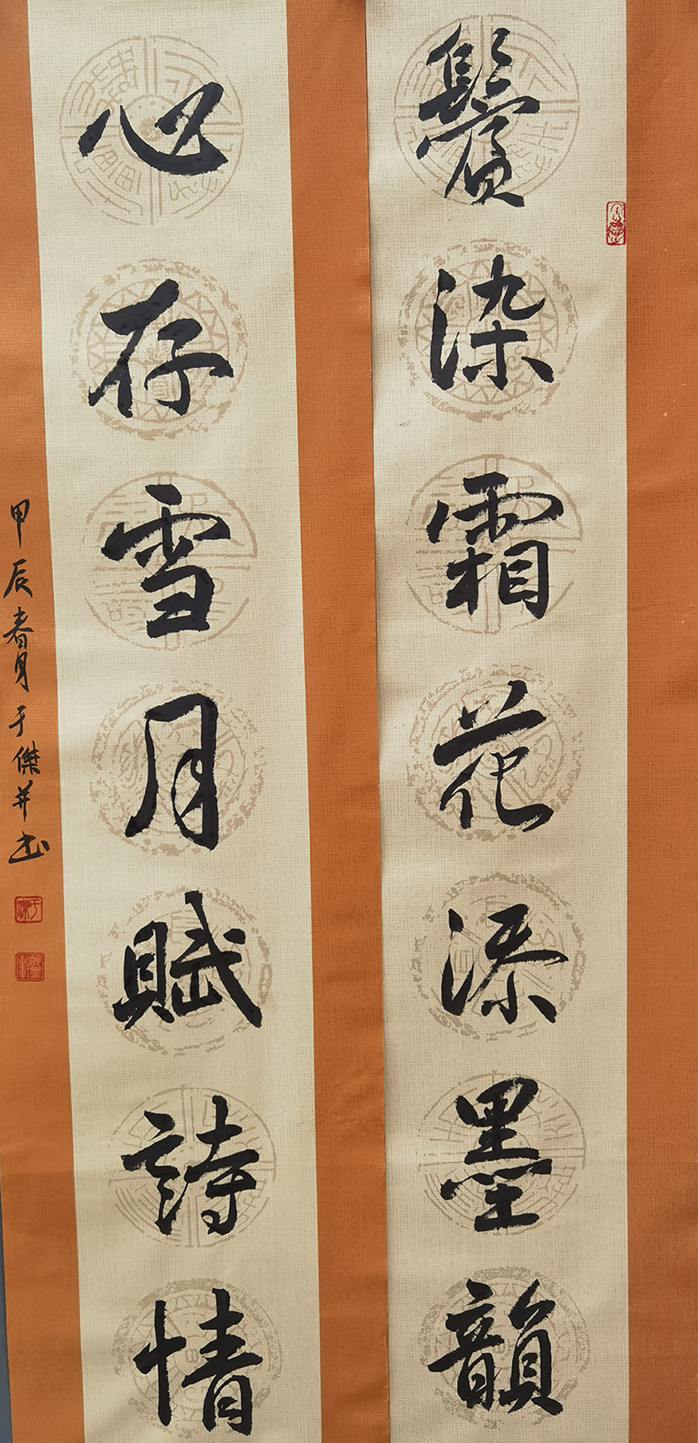 鬢染霜花添墨韻
心存雪月賦詩情
甲辰春月于傑并书